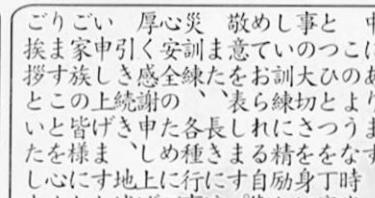 とつひとつ
事の大切さを身
しい訓練に精励
めておられる自
敬意を表します
また、長きに
災訓練、各種行
心安全のために
厚く感謝申し上
引き続き、地
い申し上げます
ご家族の皆様に
りますことを心
ご挨拶といたし